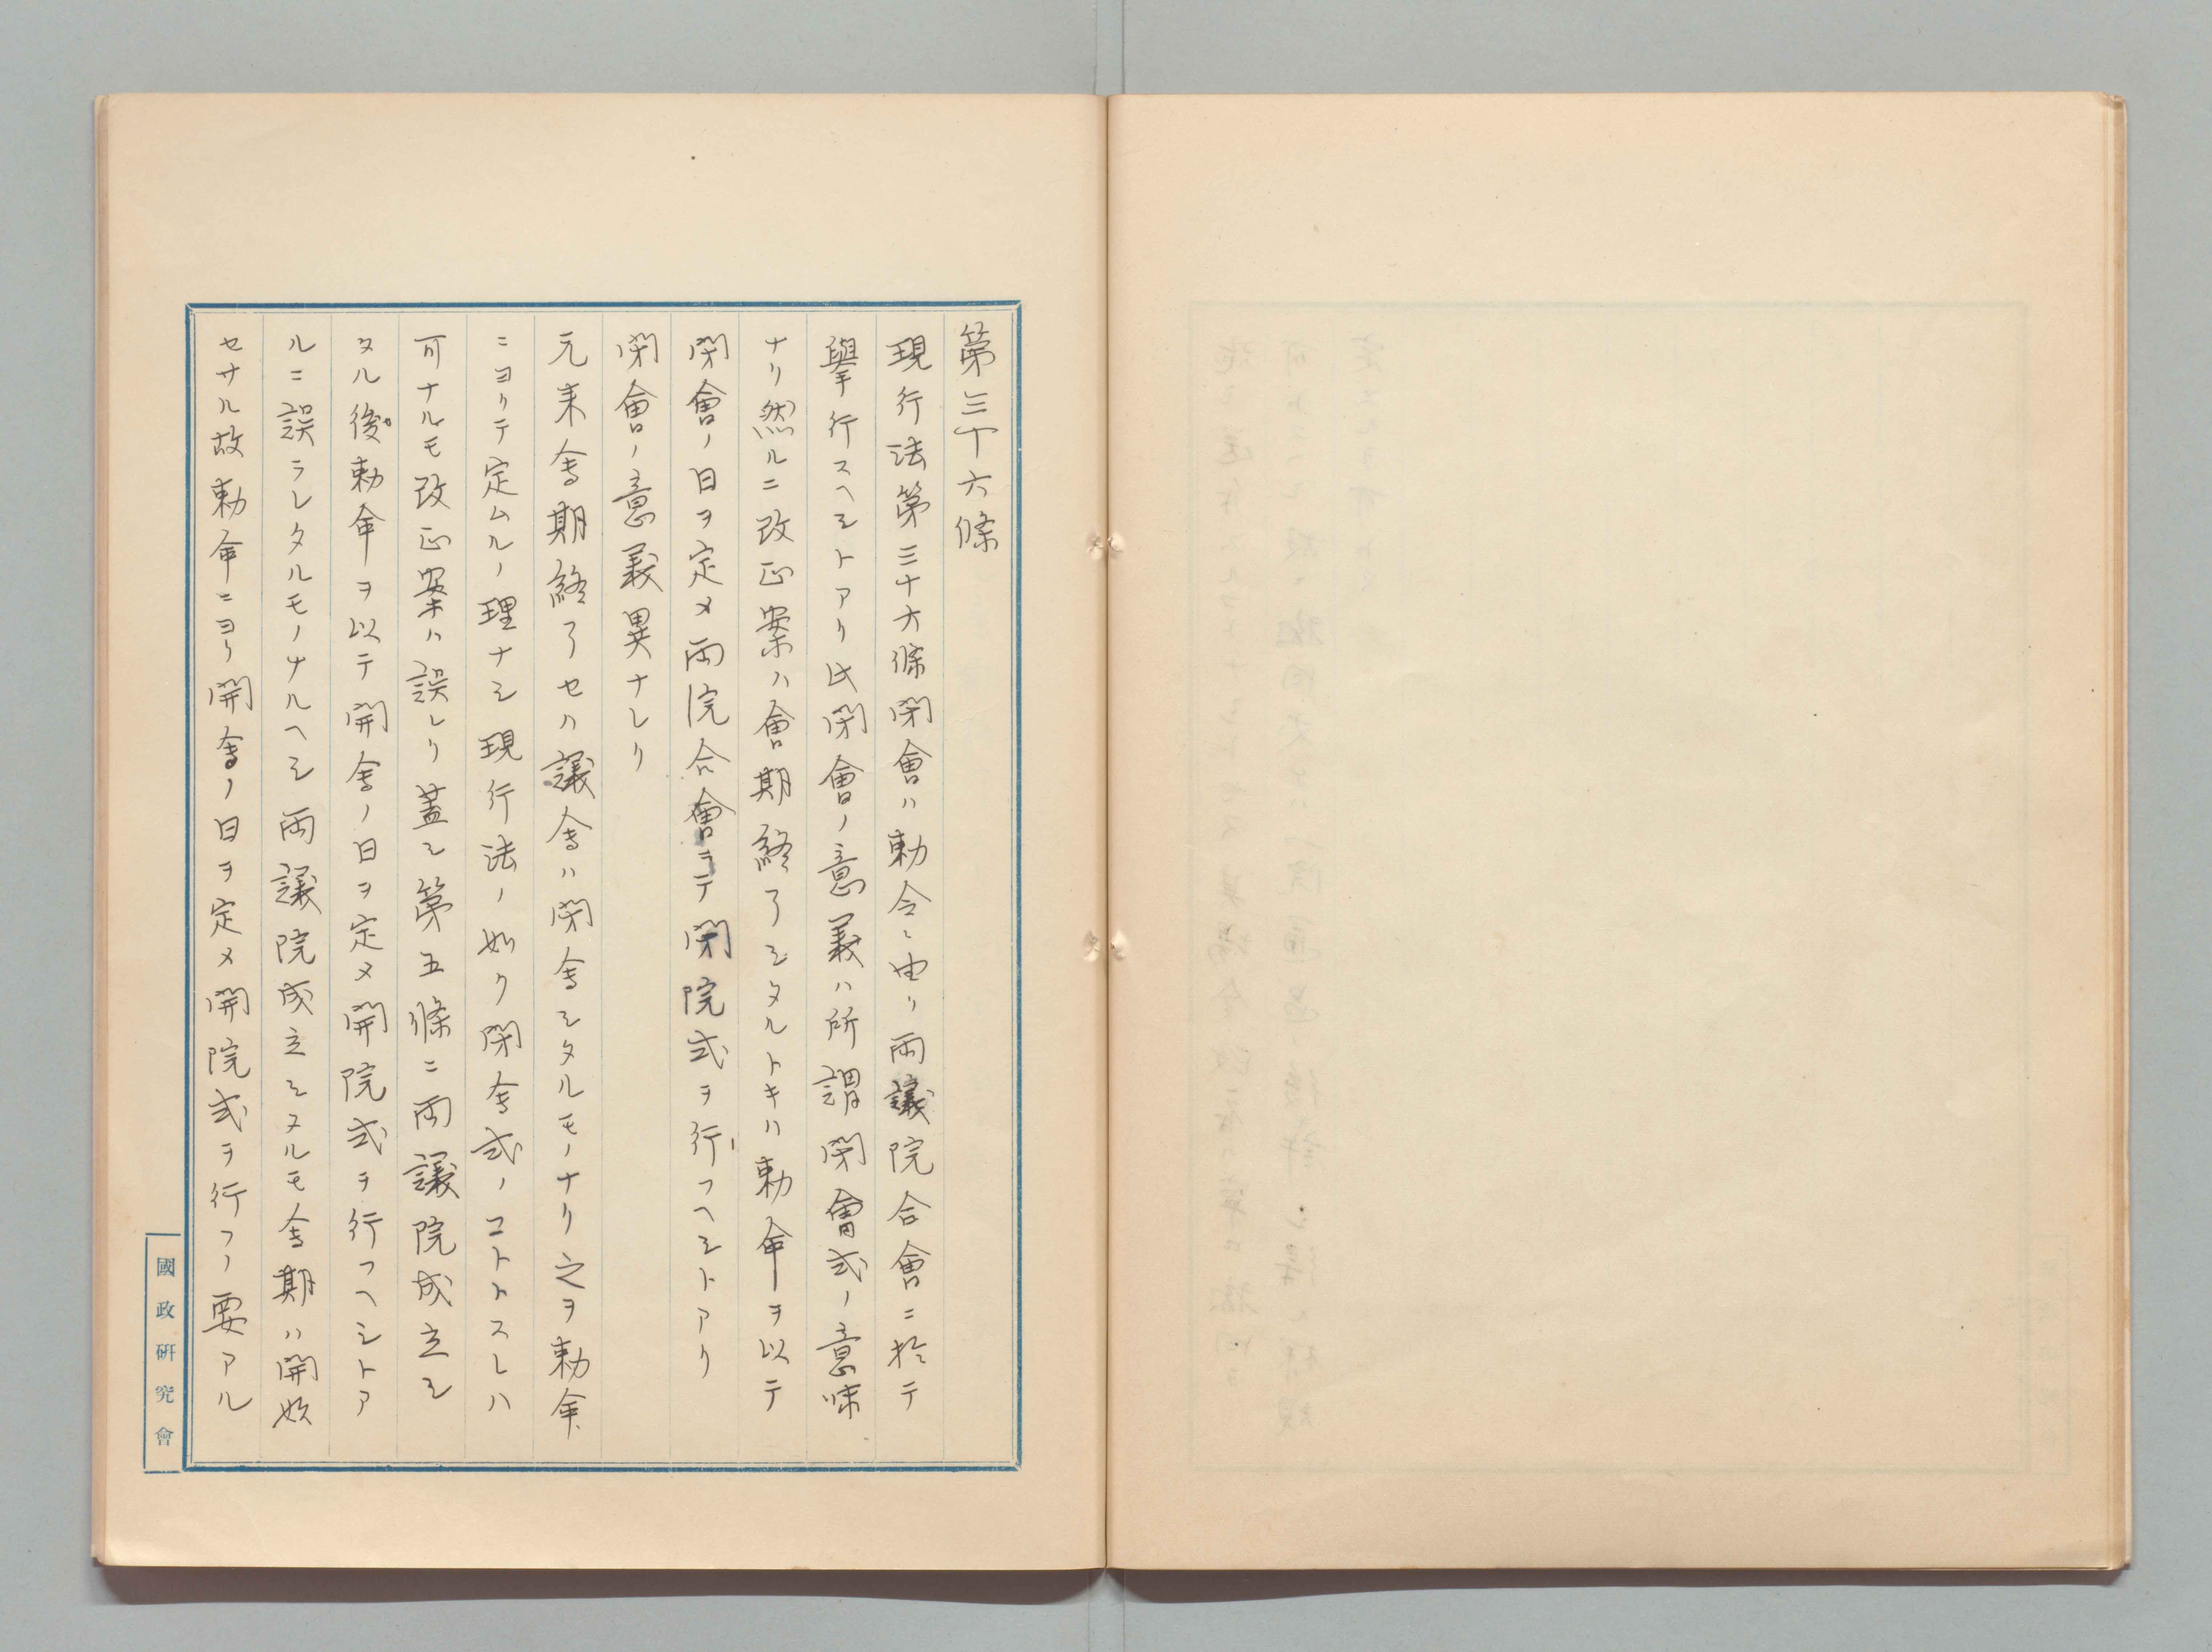 第三十六條
現行法第三十六條閉會ハ勅令ニ由リ両議院合會ニ於テ
擧行スヘシトアリ此閉會ノ意義ハ所謂閉會式ノ意味
ナリ然ルニ改正案ハ會期終了シタルトキハ勅命ヲ以テ
閉會ノ日ヲ定メ両院合會シテ閉院式ヲ行フヘシトアリ
閉會ノ意義異ナレリ
元来会期終了セハ議会ハ閉会シタルモノナリ之ヲ勅命
ニヨリテ定ムルノ理ナシ現行法ノ如ク閉会式ノコトトスレハ
可ナルモ改正案ハ誤レリ蓋シ第五條ニ両議院成立シ
タル後勅命ヲ以テ開会ノ日ヲ定メ開院式ヲ行フヘシトア
ルニ誤ラレタルモノナルヘシ両議院成立シタルモ会期ハ開始
セサル故勅命ニヨリ開会ノ日ヲ定メ開院式ヲ行フノ要アル
國政研究會